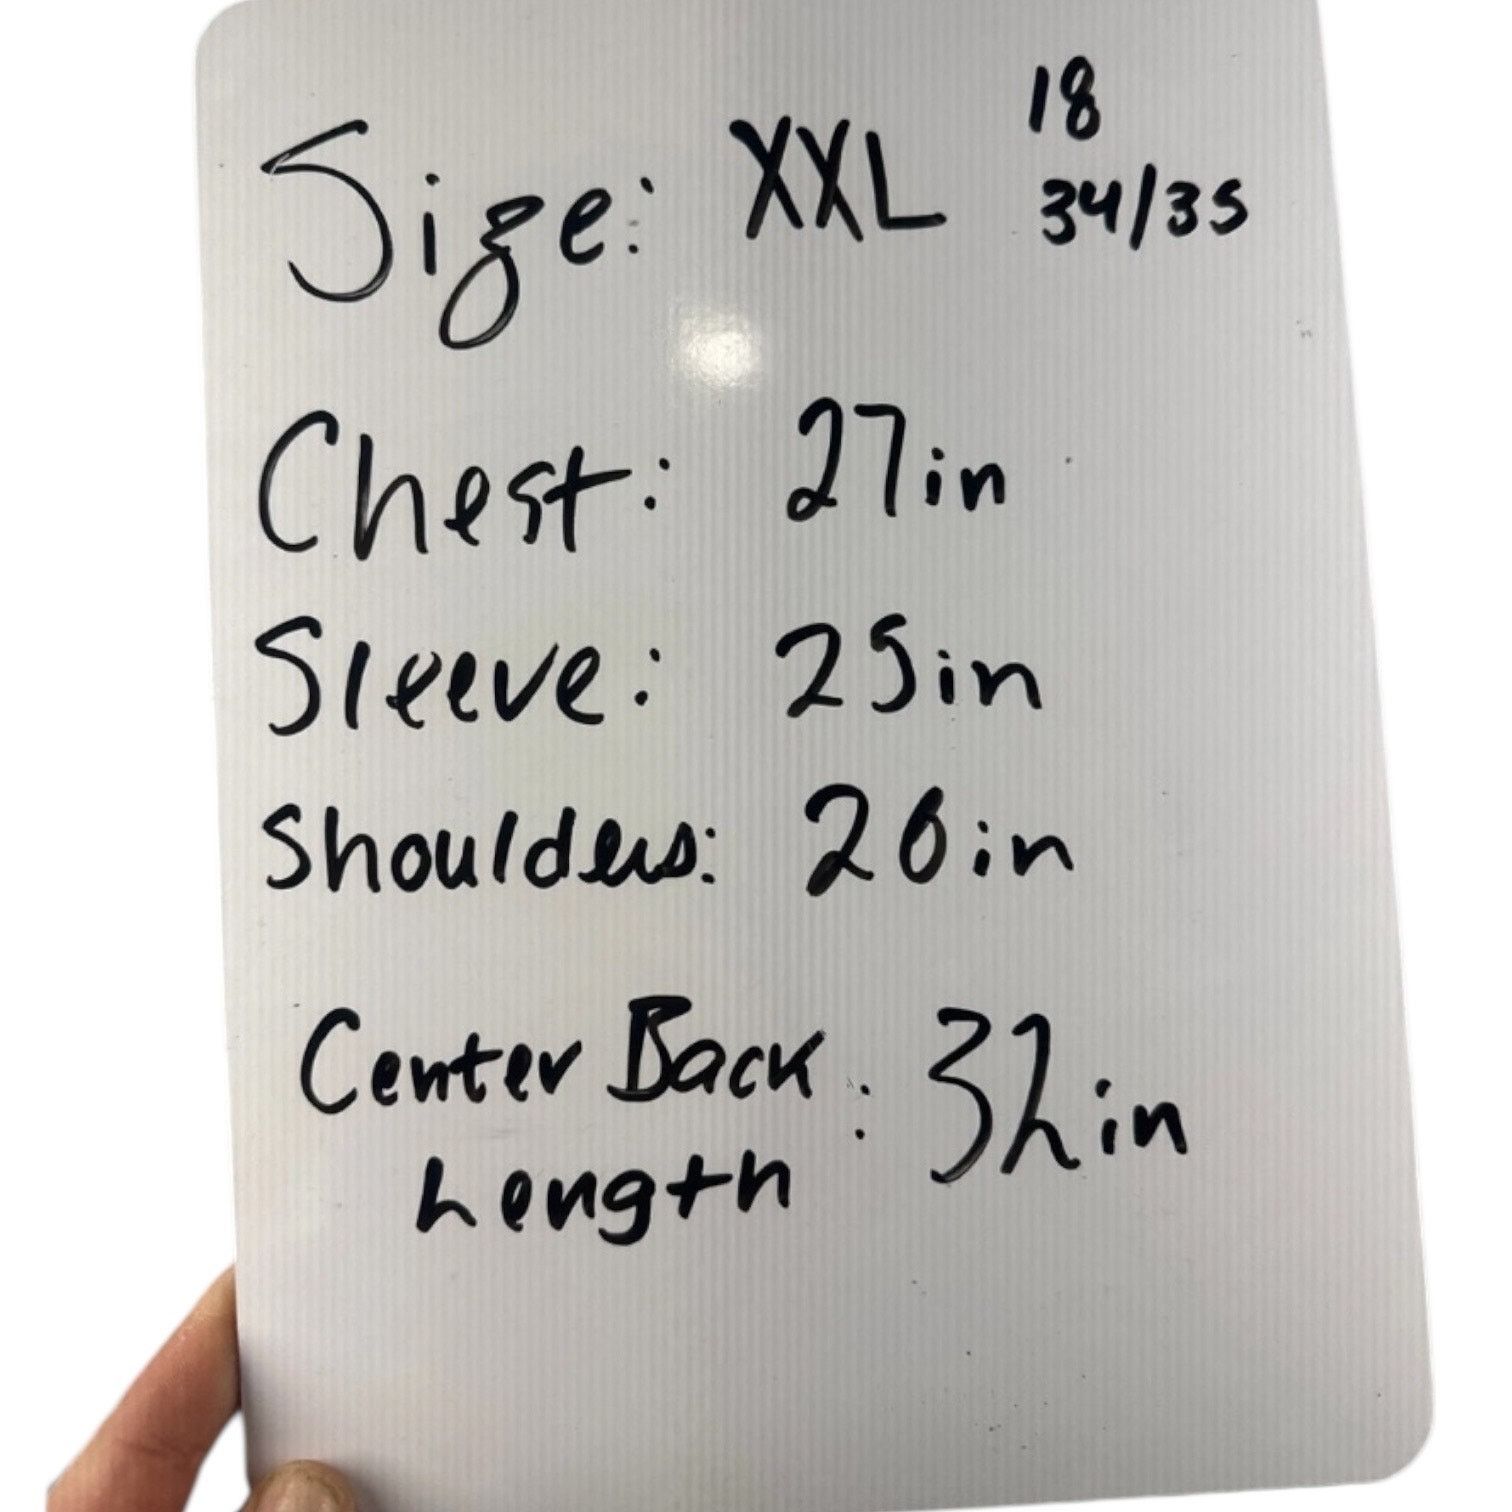 Size: XXL 18
34/35
Chest: 27in
Sleeve: 25in
Shoulders: 20in
Center Back : 32in
Length